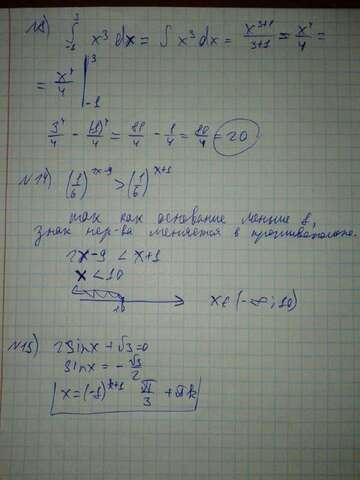 №8) ∫₋₁³ x³ dx = ∫ x³ dx = x³⁺¹/3+1 = x⁴/4 =
= x⁴/4 |₋₁³
3⁴/4 - (-1)⁴/4 = 81/4 - 1/4 = 80/4 = 20
№14) (1/6)²ˣ⁻⁹ > (1/6)ˣ⁺¹
так как основание меньше 1,
знак нер-ва меняется в противополож.
2x-9 < x+1
x < 10
10 x ∈ (-∞; 10)
№15) 2sinx + √3 = 0
sinx = - √3/2
x = (-1)ᵏ⁺¹ π/3 + πk